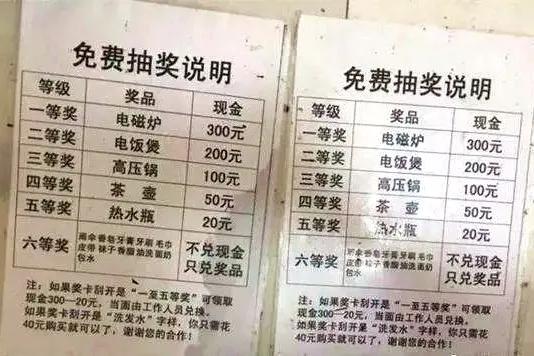 免费抽奖说明
等级 奖品 现金
一等奖 电磁炉 300元
二等奖 电饭煲 200元
三等奖 高压锅 100元
四等奖 茶壶 50元
五等奖 热水瓶 20元
六等奖 雨伞香皂牙膏牙刷毛巾 不兑现金
皮带袜子香脂油洗面奶 只兑奖品
包水
注：如果奖卡刮开是“一至五等奖”可领取
现金300—20元，当面由工作人员兑换。
如果奖卡刮开是“洗发水”字样，你只需花
40元购买就可以了，谢谢您的合作！
免费抽奖说明
等级 奖品 现金
一等奖 电磁炉 300元
二等奖 电饭煲 200元
三等奖 高压锅 100元
四等奖 茶壶 50元
五等奖 热水瓶 20元
六等奖 雨伞香皂牙膏牙刷毛巾 不兑现金
皮带袜子香脂油洗面奶 只兑奖品
包水
注：如果奖卡刮开是“一至五等奖”可领取
现金300—20元，当面由工作人员兑换。
如果奖卡刮开是“洗发水”字样，你只需花
40元购买就可以了，谢谢您的合作！